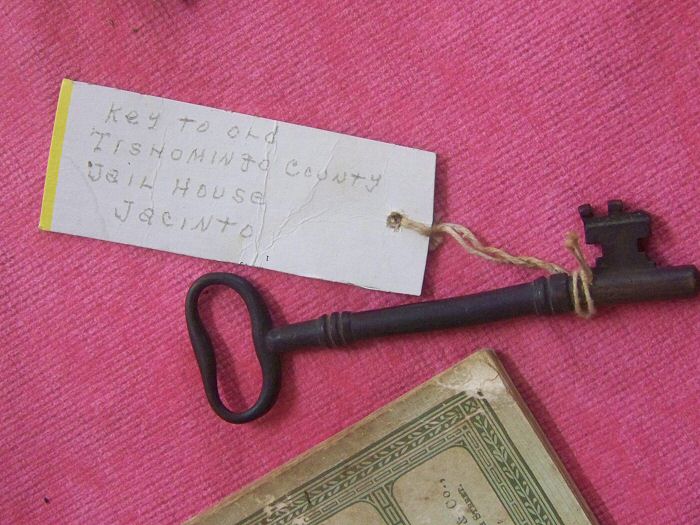 Key to old
Tishomingo County
Jail House
Jacinto
& Co.,